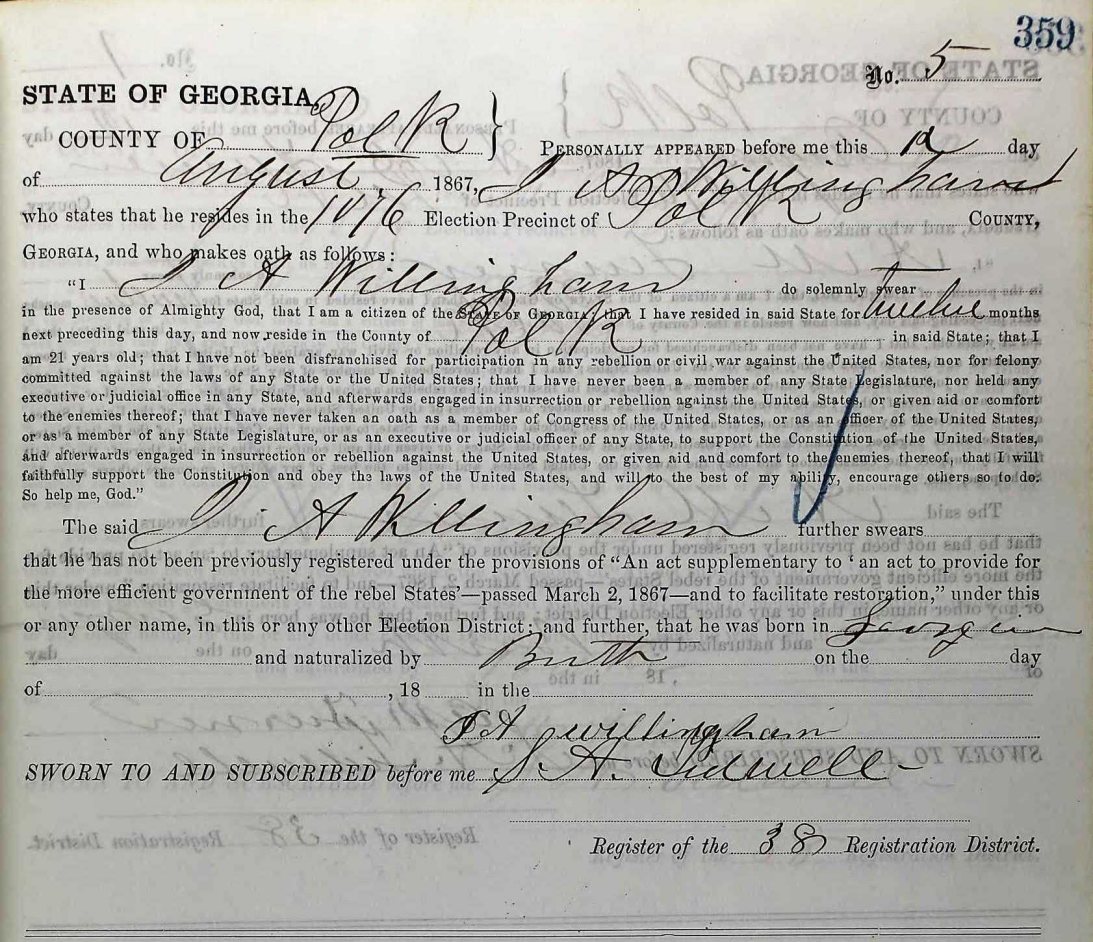 359
No. 5
STATE OF GEORGIA,
COUNTY OF Polk } PERSONALLY APPEARED before me this 12 day
of August, 1867, A Willingham
who states that he resides in the 1076 Election Precinct of Polk COUNTY,
GEORGIA, and who makes oath as follows:
"I A Willingham do solemnly swear
in the presence of Almighty God, that I am a citizen of the STATE OF GEORGIA; that I have resided in said State for twelve months
next preceding this day, and now reside in the County of Polk in said State; that I
am 21 years old; that I have not been disfranchised for participation in any rebellion or civil war against the United States, nor for felony
committed against the laws of any State or the United States; that I have never been a member of any State Legislature, nor held any
executive or judicial office in any State, and afterwards engaged in insurrection or rebellion against the United States, or given aid or comfort
to the enemies thereof; that I have never taken an oath as a member of Congress of the United States, or as an officer of the United States,
or as a member of any State Legislature, or as an executive or judicial officer of any State, to support the Constitution of the United States,
and afterwards engaged in insurrection or rebellion against the United States, or given aid and comfort to the enemies thereof, that I will
faithfully support the Constitution and obey the laws of the United States, and will to the best of my ability, encourage others so to do.
So help me, God."
The said A Willingham further swears
that he has not been previously registered under the provisions of "An act supplementary to 'an act to provide for
the more efficient government of the rebel States'—passed March 2, 1867—and to facilitate restoration," under this
or any other name, in this or any other Election District; and further, that he was born in Georgia
and naturalized by Birth on the day
of , 18 in the
A willingham
SWORN TO AND SUBSCRIBED before me S. A.
Register of the 38 Registration District.